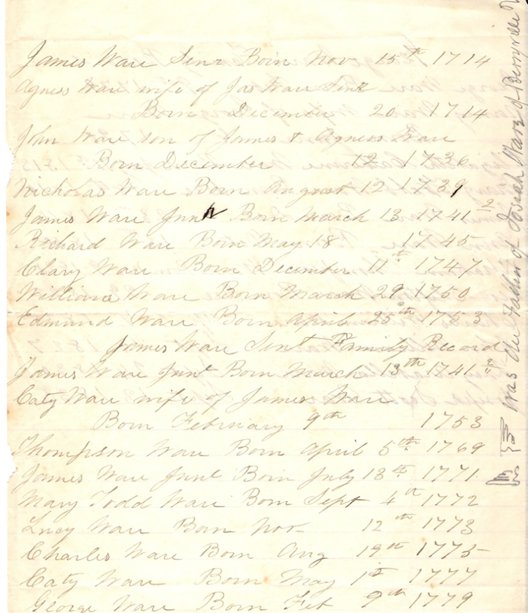 James Ware Senr Born Nov 15th 1714
Agness Ware wife of Jas Ware Senr
Born December 20 1714
John Ware son of James & Agness Ware
Born December 12 1736
Nicholas Ware Born August 12 1739
James Ware Junr Born March 13 1741/2
Richard Ware Born May 18 1745
Clary Ware Born December 11th 1747
William Ware Born March 29 1750
Edmund Ware Born April 25th 1753
James Ware Senr Family Record
James Ware Junr Born March 13th 1741/2
Caty Ware wife of James Ware
Born February 9th 1753
Thompson Ware Born April 5th 1769
James Ware Junr Born July 13th 1771
Mary Todd Ware Born Sept 4th 1772
Lucy Ware Born Nov 12th 1773
Charles Ware Born Aug 19th 1775
Caty Ware Born May 1st 1777
George Ware Born Feb 9th 1779
was the Father of Josiah Ware of